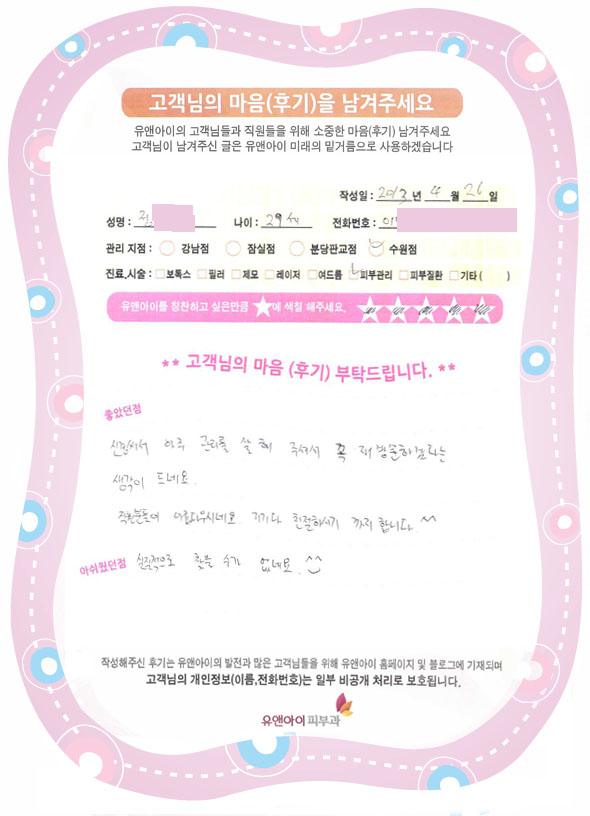 고객님의 마음(후기)을 남겨주세요
유앤아이의 고객님들과 직원들을 위해 소중한 마음(후기) 남겨주세요
고객님이 남겨주신 글은 유앤아이 미래의 밑거름으로 사용하겠습니다
작성일 : 2013 년 4 월 26 일
성명 : 나이 : 29세 전화번호 : 01
관리 지점 : 강남점 잠실점 분당판교점 수원점
진료,시술 : 보톡스 필러 제모 레이저 여드름 피부관리 피부질환 기타 ( )
유앤아이를 칭찬하고 싶은만큼 ★에 색칠 해주세요.
** 고객님의 마음 (후기) 부탁드립니다. **
좋았던점
아주 관리를 잘 해 주셔서 꼭 재방문하겠다는
생각이 드네요.
직원분들이 아름다우시네요. 거기다 친절하시기 까지 합니다 ^^
아쉬웠던점 실질적으로 찾을 수가 없네요. ^^
작성해주신 후기는 유앤아이의 발전과 많은 고객님들을 위해 유앤아이 홈페이지 및 블로그에 기재되며
고객님의 개인정보(이름,전화번호)는 일부 비공개 처리로 보호됩니다.
유앤아이피부과